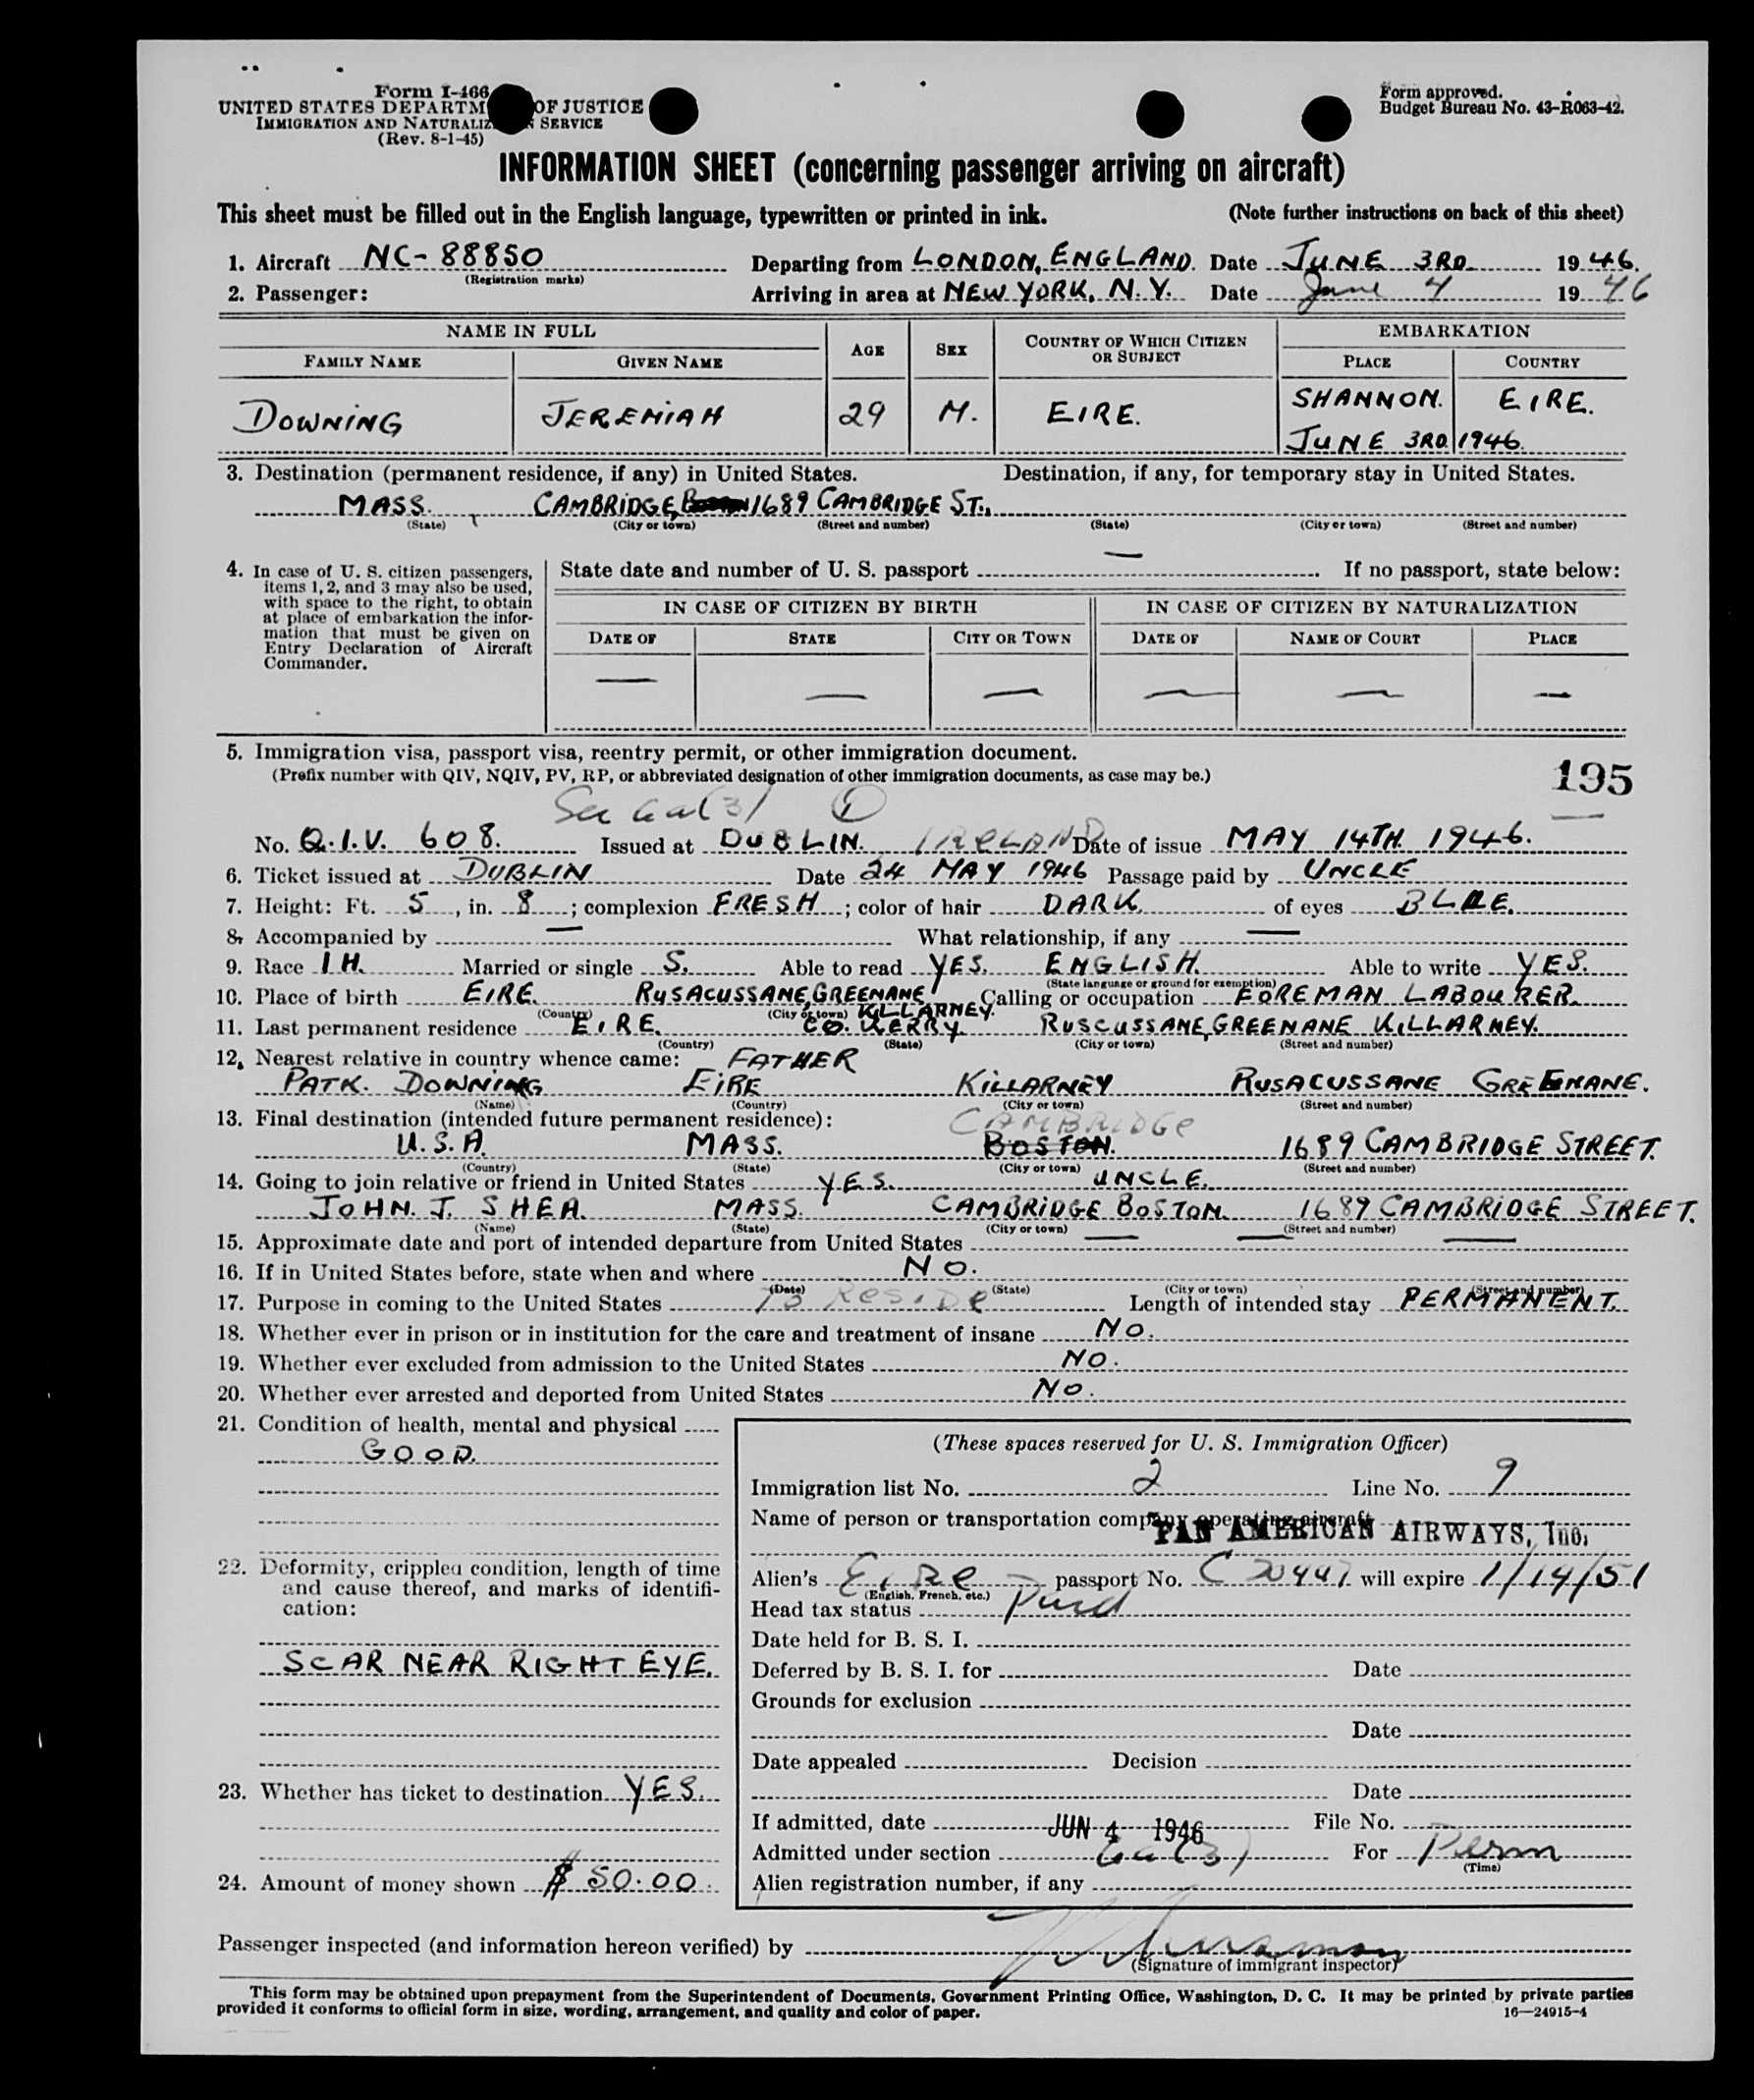 Form I-466
UNITED STATES DEPARTM OF JUSTICE
IMMIGRATION AND NATURALIZ N SERVICE
(Rev. 8-1-45)
Form approved.
Budget Bureau No. 43-R063-42.
INFORMATION SHEET (concerning passenger arriving on aircraft)
This sheet must be filled out in the English language, typewritten or printed in ink. (Note further instructions on back of this sheet)
1. Aircraft NC-88850 Departing from LONDON, ENGLAND. Date JUNE 3RD. 1946.
(Registration marks)
2. Passenger: Arriving in area at NEW YORK, N.Y. Date June 4 1946
NAME IN FULL AGE SEX COUNTRY OF WHICH CITIZEN OR SUBJECT EMBARKATION
FAMILY NAME GIVEN NAME PLACE COUNTRY
DOWNING JEREMIAH 29 M. EIRE. SHANNON. EIRE.
JUNE 3RD. 1946.
3. Destination (permanent residence, if any) in United States. Destination, if any, for temporary stay in United States.
MASS. CAMBRIDGE, 1689 CAMBRIDGE ST.,
(State) (City or town) (Street and number) (State) (City or town) (Street and number)
4. In case of U. S. citizen passengers, items 1, 2, and 3 may also be used, with space to the right, to obtain at place of embarkation the information that must be given on Entry Declaration of Aircraft Commander.
State date and number of U. S. passport — . If no passport, state below:
IN CASE OF CITIZEN BY BIRTH IN CASE OF CITIZEN BY NATURALIZATION
DATE OF STATE CITY OR TOWN DATE OF NAME OF COURT PLACE
— — — — — —
5. Immigration visa, passport visa, reentry permit, or other immigration document.
(Prefix number with QIV, NQIV, PV, RP, or abbreviated designation of other immigration documents, as case may be.)
195
Sec 6a(3) 1
No. Q.I.V. 608. Issued at DUBLIN. IRELAND Date of issue MAY 14TH. 1946.
6. Ticket issued at DUBLIN Date 24 MAY 1946 Passage paid by UNCLE
7. Height: Ft. 5, in. 8; complexion FRESH; color of hair DARK. of eyes BLUE.
8. Accompanied by — What relationship, if any —
9. Race IH. Married or single S. Able to read YES. ENGLISH. Able to write YES.
(State language or ground for exemption)
10. Place of birth EIRE. RUSACUSSANE, GREENANE KILLARNEY. Calling or occupation FOREMAN LABOURER.
(Country) (City or town)
11. Last permanent residence EIRE. CO. KERRY RUSCUSSANE, GREENANE KILLARNEY.
(Country) (State) (City or town) (Street and number)
12. Nearest relative in country whence came: FATHER
PATK. DOWNING EIRE KILLARNEY RUSACUSSANE GREENANE.
(Name) (Country) (City or town) (Street and number)
13. Final destination (intended future permanent residence): CAMBRIDGE
U.S.A. MASS. BOSTON. 1689 CAMBRIDGE STREET.
(Country) (State) (City or town) (Street and number)
14. Going to join relative or friend in United States YES. UNCLE.
JOHN. J. SHEA. MASS. CAMBRIDGE BOSTON. 1689 CAMBRIDGE STREET.
(Name) (State) (City or town) (Street and number)
15. Approximate date and port of intended departure from United States — — —
16. If in United States before, state when and where NO.
(Date) (State) (City or town) (Street and number)
17. Purpose in coming to the United States To RESIDE Length of intended stay PERMANENT.
18. Whether ever in prison or in institution for the care and treatment of insane NO.
19. Whether ever excluded from admission to the United States NO.
20. Whether ever arrested and deported from United States NO.
21. Condition of health, mental and physical
GOOD.
22. Deformity, crippled condition, length of time and cause thereof, and marks of identification:
SCAR NEAR RIGHT EYE.
23. Whether has ticket to destination YES.
24. Amount of money shown $ 50.00.
(These spaces reserved for U. S. Immigration Officer)
Immigration list No. 2 Line No. 9
Name of person or transportation company operating aircraft
PAN AMERICAN AIRWAYS, Inc.
Alien's EIRE passport No. C 20447 will expire 1/14/51
(English, French, etc.)
Head tax status Paid
Date held for B. S. I.
Deferred by B. S. I. for Date
Grounds for exclusion
Date
Date appealed Decision
Date
If admitted, date JUN 4 1946 File No.
Admitted under section 6a(3) For Perm
(Time)
Alien registration number, if any
Passenger inspected (and information hereon verified) by
(Signature of immigrant inspector)
This form may be obtained upon prepayment from the Superintendent of Documents, Government Printing Office, Washington, D. C. It may be printed by private parties
provided it conforms to official form in size, wording, arrangement, and quality and color of paper. 16—24915-4